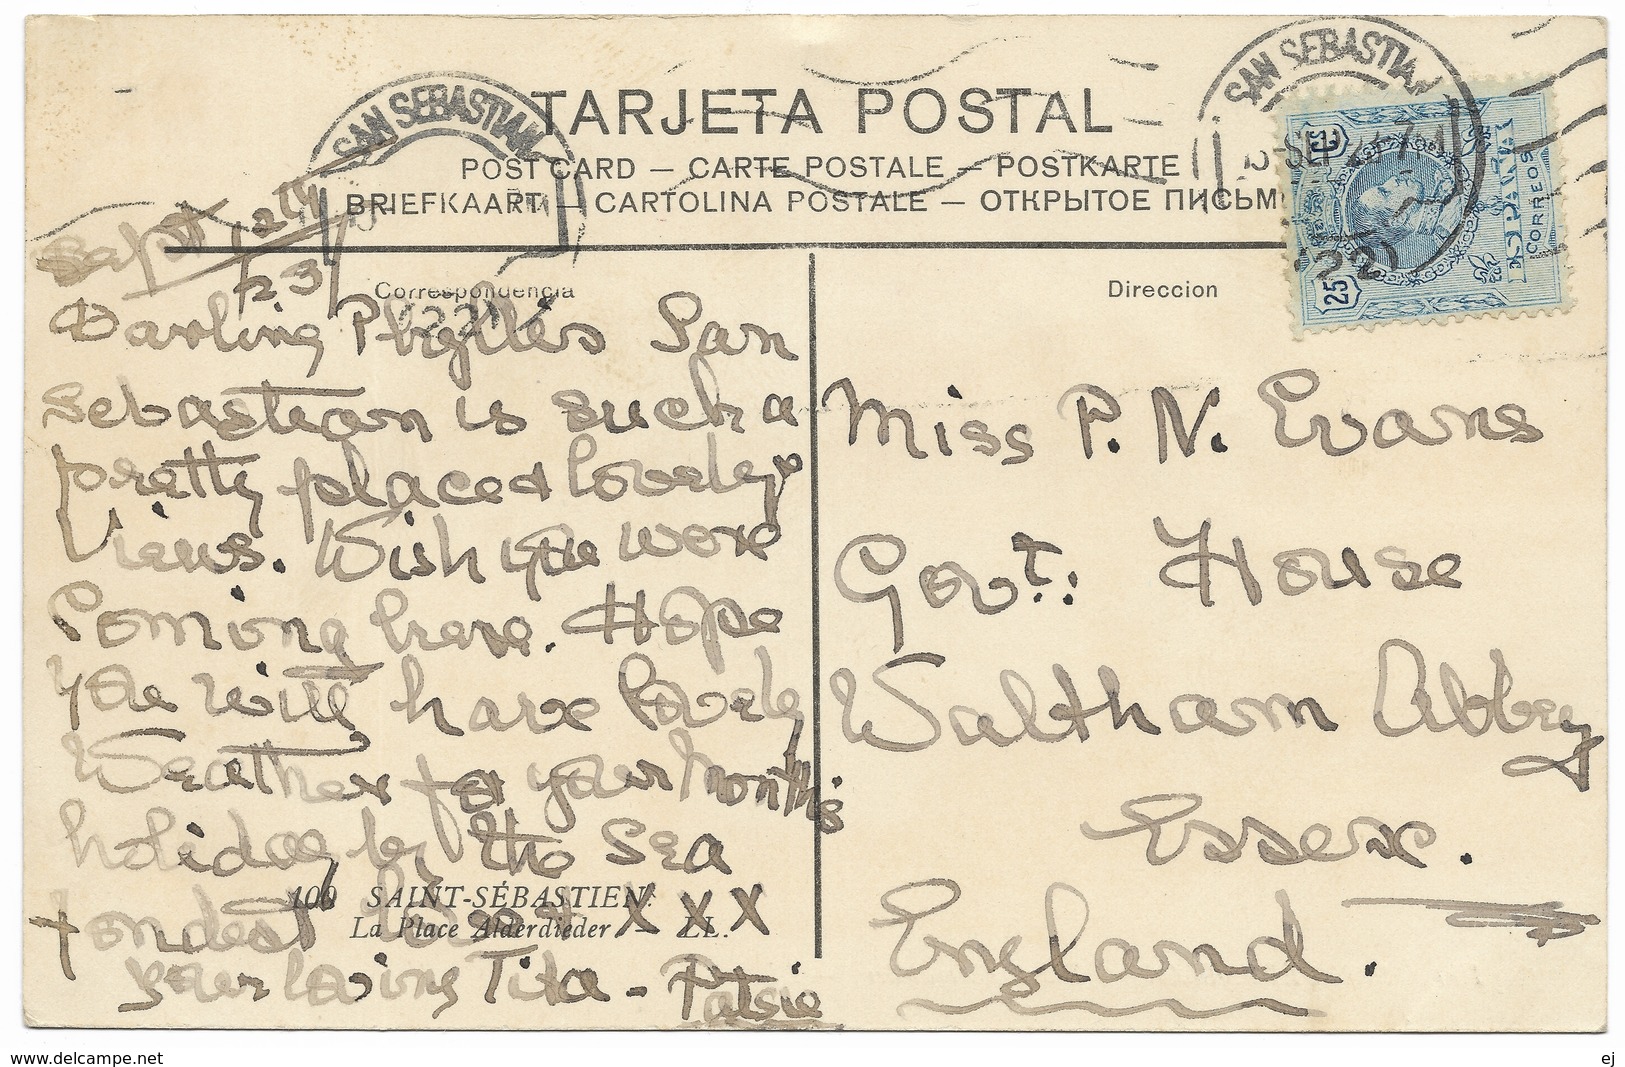 TARJETA POSTAL
POST CARD — CARTE POSTALE — POSTKARTE
BRIEFKAART — CARTOLINA POSTALE — ОТКРЫТОЕ ПИСЬМ
SAN SEBASTIAN
SAN SEBASTIAN
SEP
ESPAÑA
CORREOS
25 CS
Sept 12TH
/23
Correspondencia
Direccion
Darling Phyllis San
Sebastian is such a
pretty place & lovely
Views. Wish you were
Coming here. Hope
you will have lovely
Weather for your month's
holiday by the Sea
fondest love X X X
your loving Tita - Patsie
100 SAINT-SÉBASTIEN.
La Place Alderdieder — LL.
Miss P. N. Evans
Govt: House
Waltham Abbey
Essex.
England.
www.delcampe.net
ej